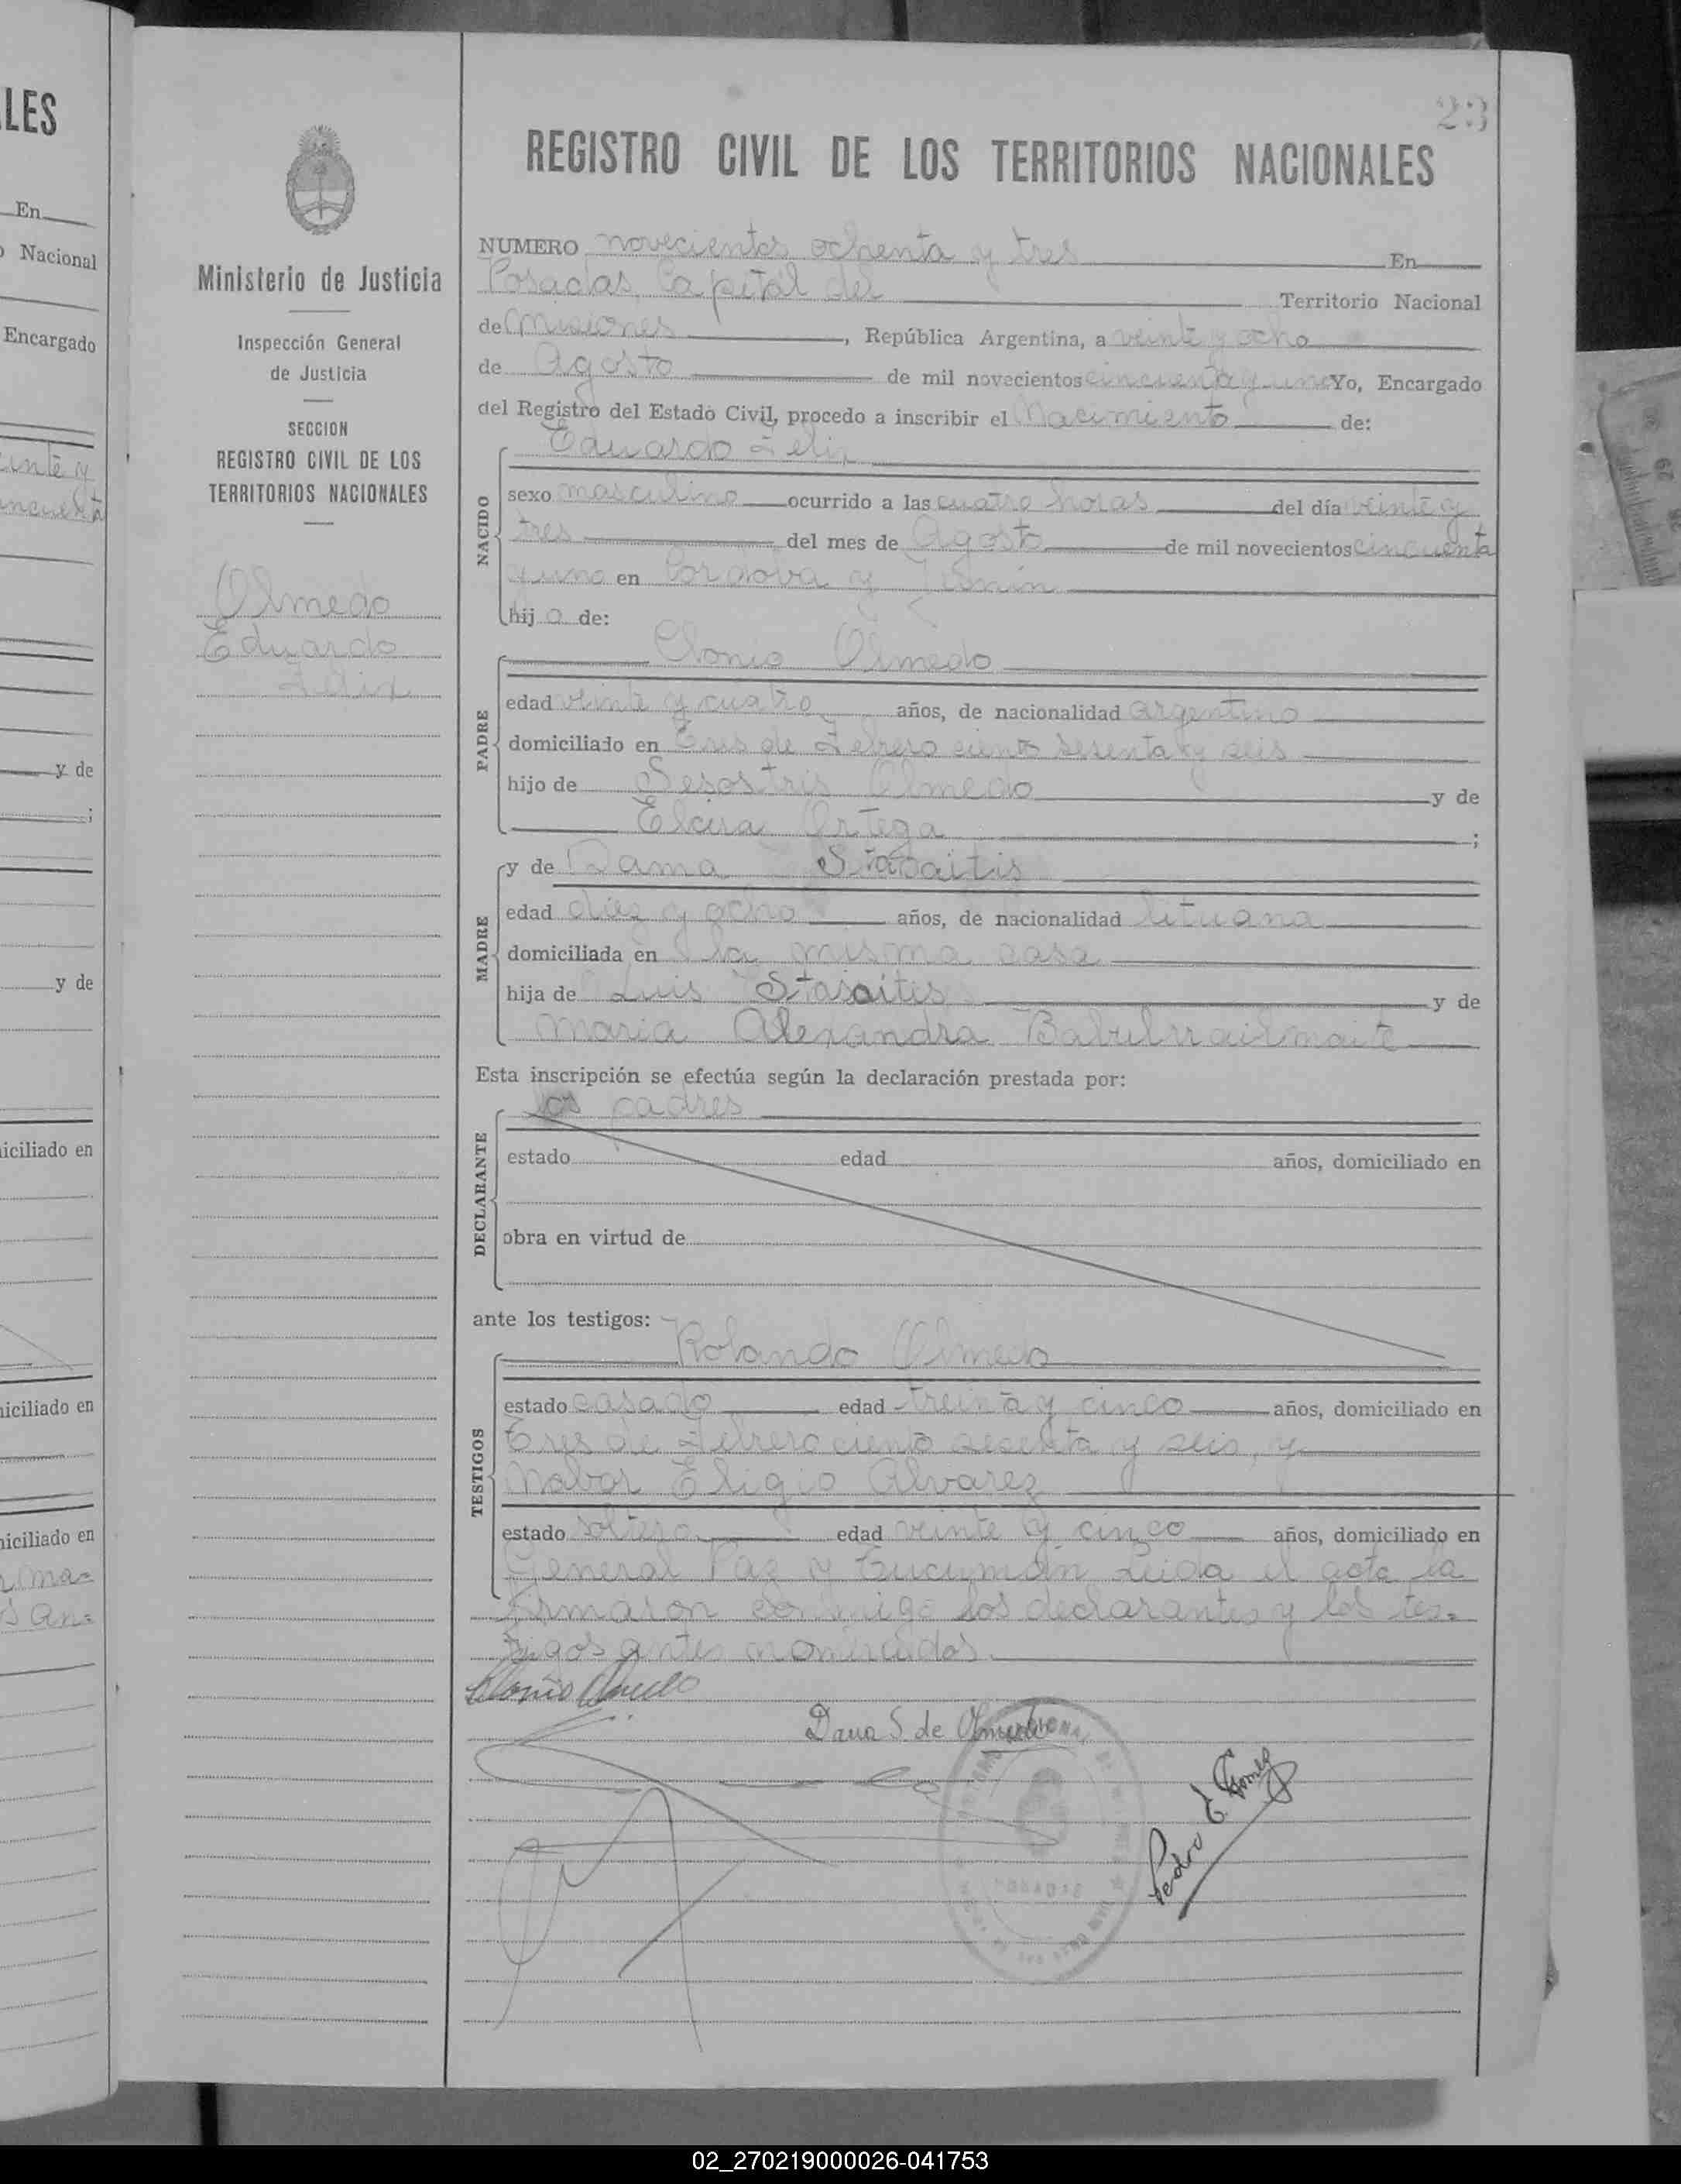 LES
En
Nacional
Encargado
inte y
ncuenta
y de
;
y de
iciliado en
iciliado en
iciliado en
23
Ministerio de Justicia
Inspección General
de Justicia
SECCION
REGISTRO CIVIL DE LOS
TERRITORIOS NACIONALES
Olmedo
Eduardo
Felix
REGISTRO CIVIL DE LOS TERRITORIOS NACIONALES
NUMERO novecientos ochenta y tres En
Posadas, Capital del Territorio Nacional
de Misiones, República Argentina, a veinte y ocho
de Agosto de mil novecientos cincuenta y uno Yo, Encargado
del Registro del Estado Civil, procedo a inscribir el Nacimiento de:
Eduardo Felix
NACIDO
sexo masculino ocurrido a las cuatro horas del día veinte y
tres del mes de Agosto de mil novecientos cincuenta
y uno en Cordova y Junin
hijo de:
PADRE
Clonio Olmedo
edad veinte y cuatro años, de nacionalidad argentino
domiciliado en Tres de Febrero ciento sesenta y seis
hijo de Sesostris Olmedo y de
Elcira Ortega ;
MADRE
y de Dama Stasaitis
edad diez y ocho años, de nacionalidad lituana
domiciliada en la misma casa
hija de Luis Stasaitis y de
Maria Alexandra
Esta inscripción se efectúa según la declaración prestada por:
los padres
DECLARANTE
estado edad años, domiciliado en
obra en virtud de
ante los testigos:
Rolando Olmedo
TESTIGOS
estado casado edad treinta y cinco años, domiciliado en
Tres de Febrero ciento sesenta y seis, y
Nabor Eligio Alvarez
estado soltero edad veinte y cinco años, domiciliado en
General Paz y Tucumán Leida el acta la
firmaron conmigo los declarantes y los tes=
tigos antes nombrados.
Clonio Olmedo
Dana S. de Olmedo
Pedro E. Gomez
02_270219000026-041753